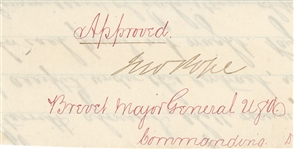 Approved.
Jno Pope
Brevet Major General U.S.A.
Commanding.